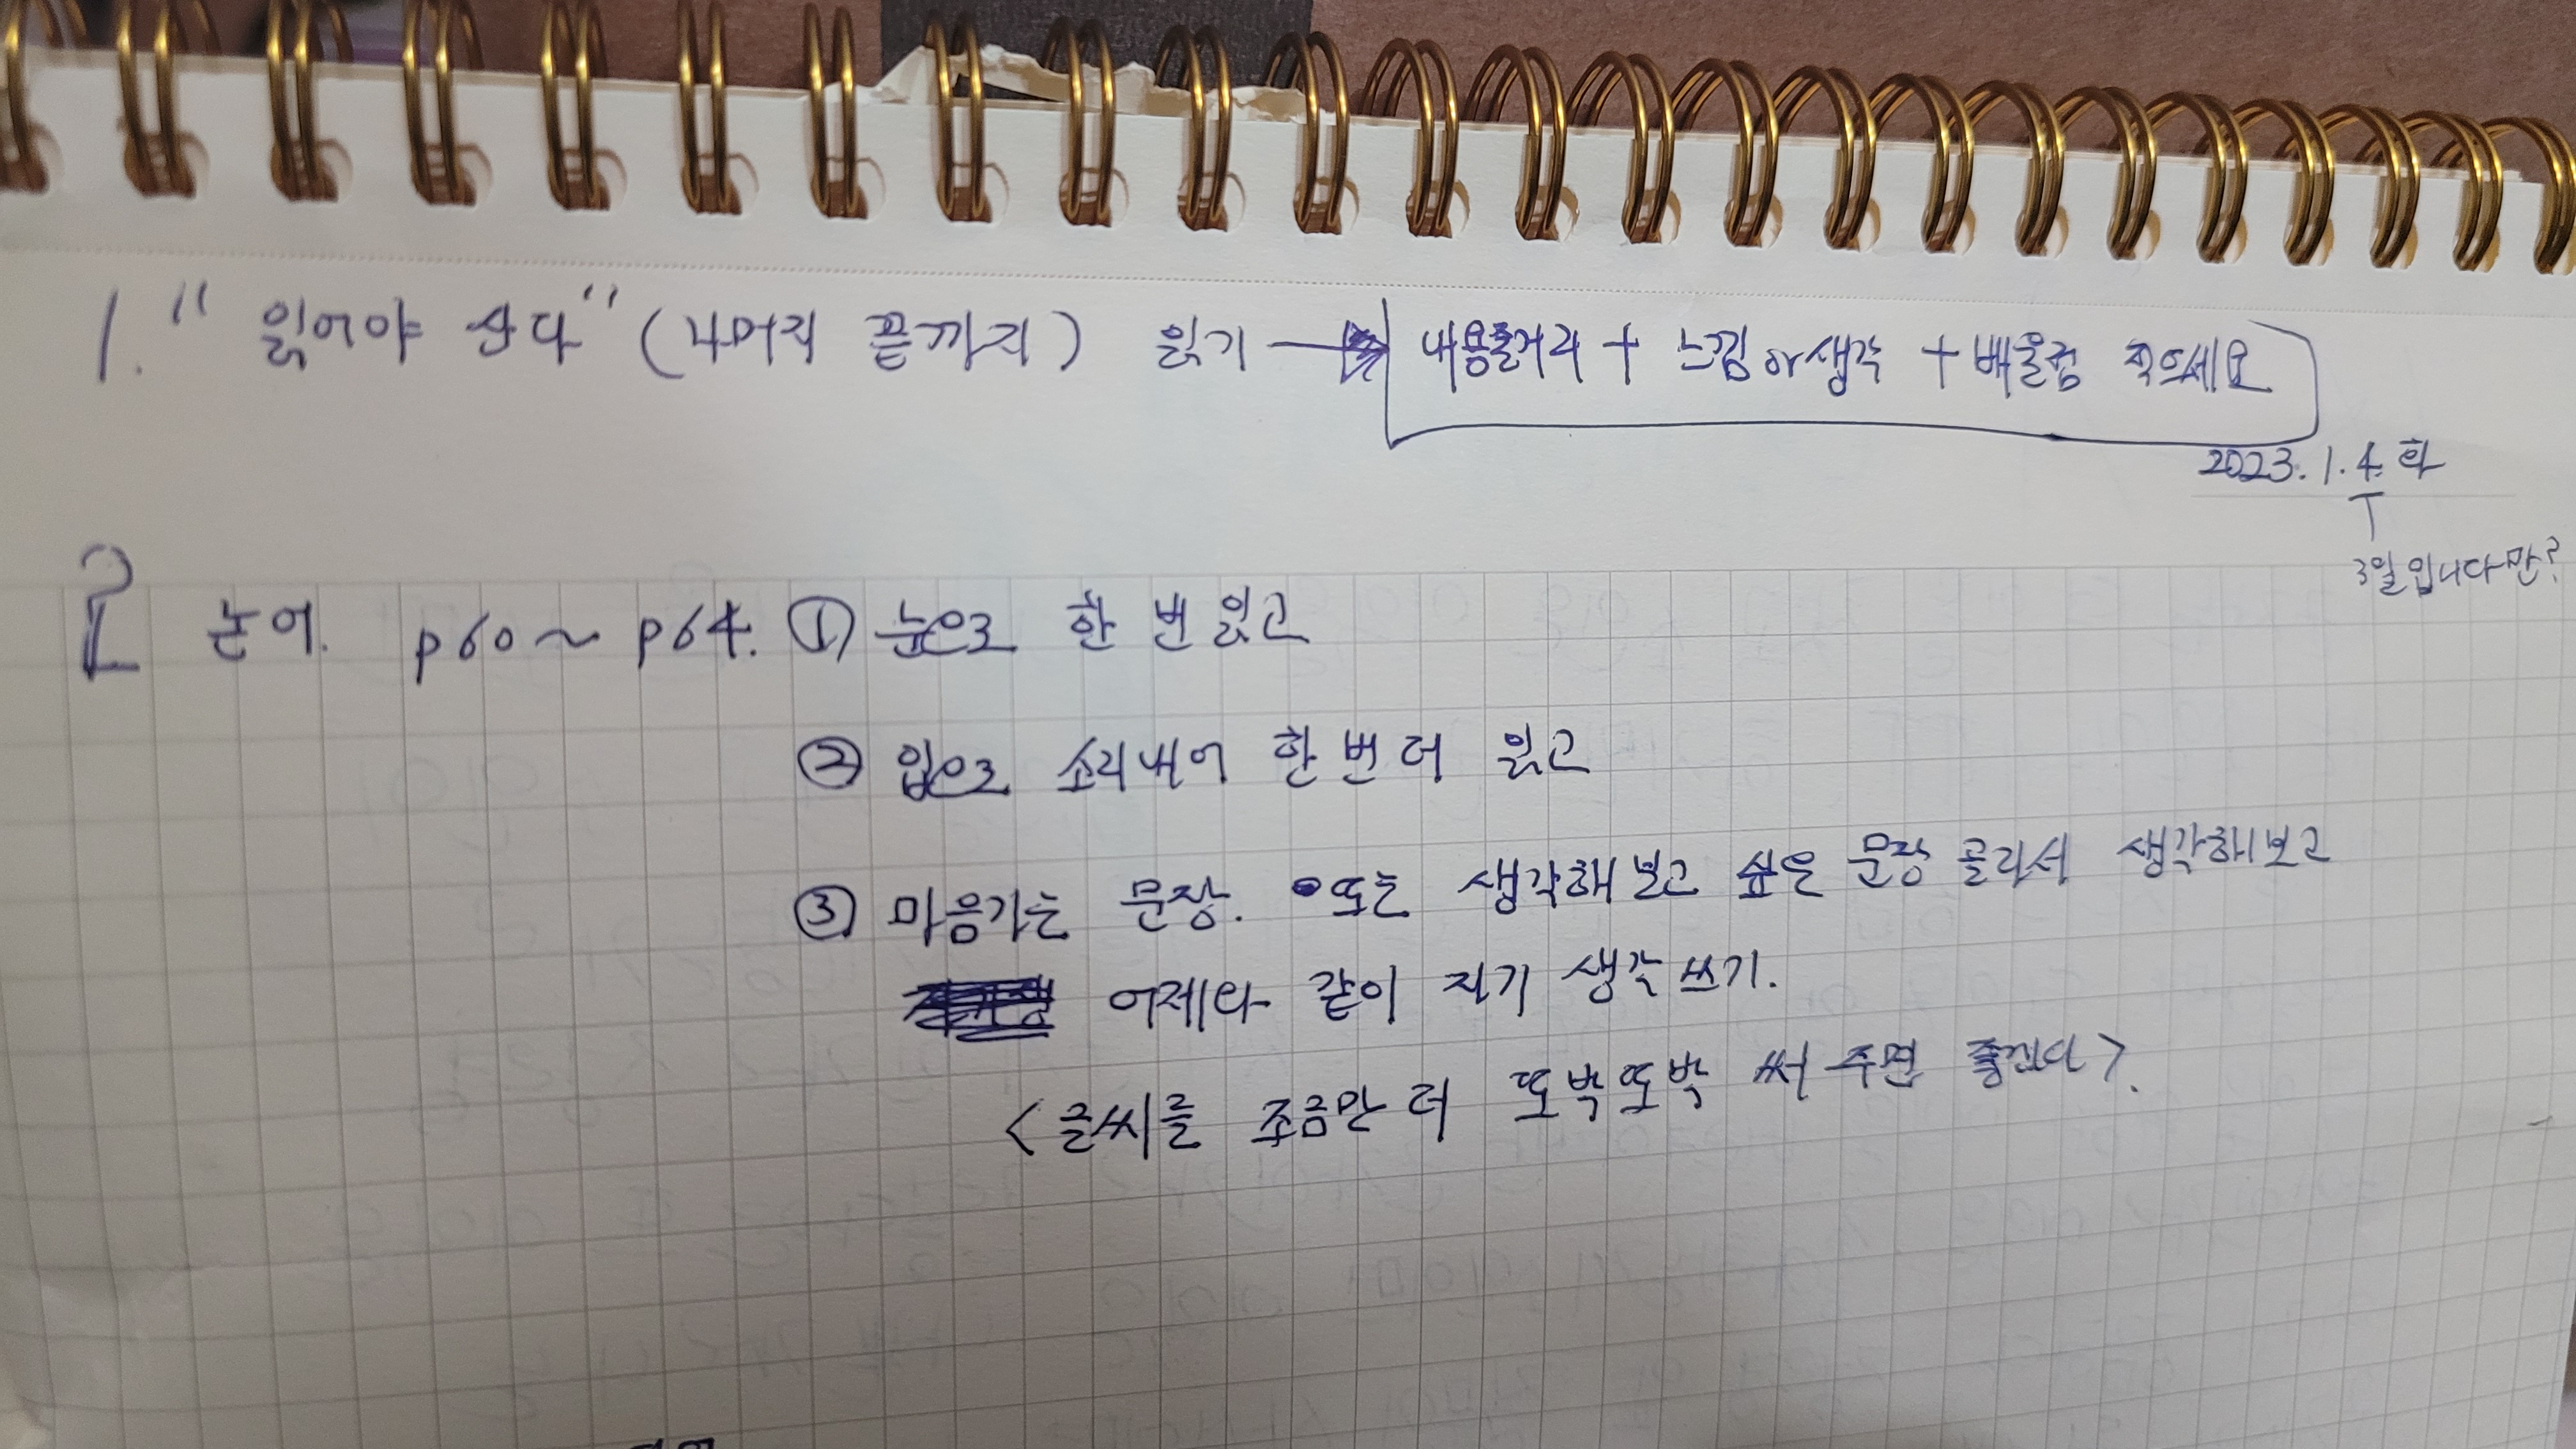 1. " 읽어야 산다" (나머지 끝까지) 읽기 → 내용줄거리 + 느낌 or 생각 + 배울점 적으세요
2023. 1. 4 화
3일입니다만?
2 논어. p60 ~ p64. ① 눈으로 한 번 읽고
② 입으로 소리내어 한 번 더 읽고
③ 마음가는 문장. 또는 생각해 보고 싶은 문장 골라서 생각해보고
어제와 같이 자기 생각 쓰기.
<글씨를 조금만 더 또박또박 써 주면 좋겠다>.